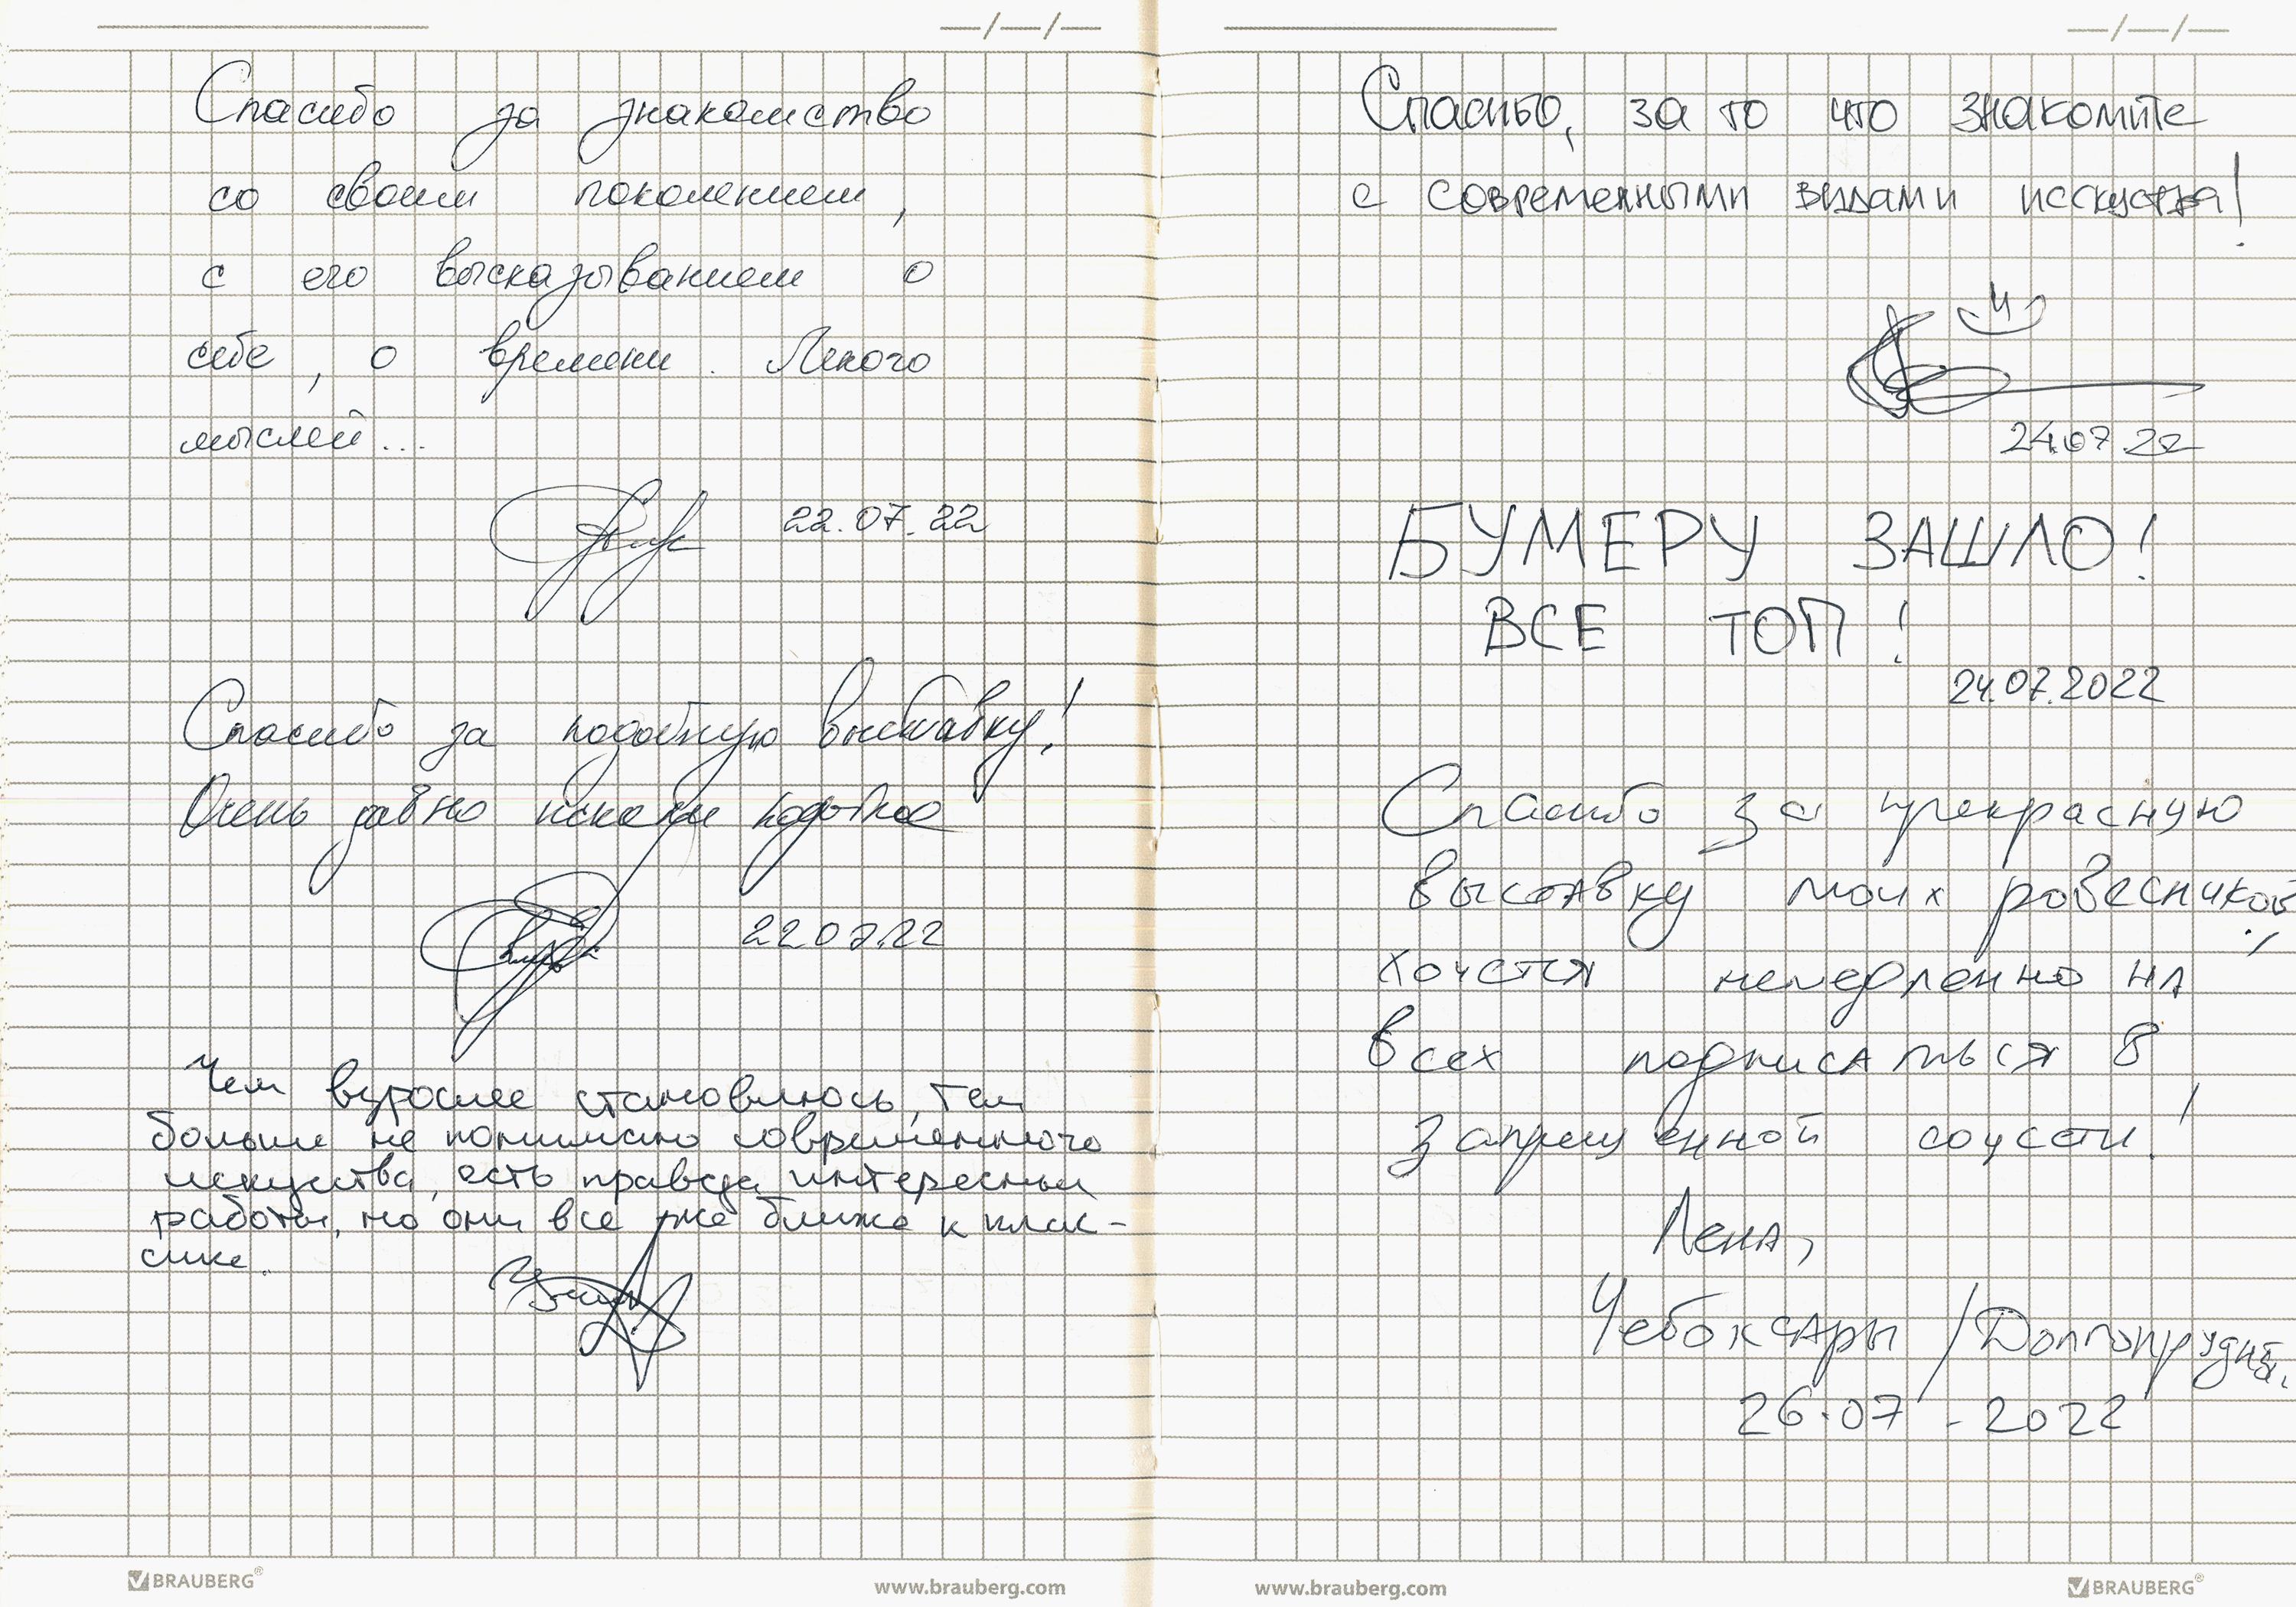 Спасибо за знакомство
со своим поколением,
с его высказыванием о
себе, о времени. Много
мыслей...
22.07.22
Спасибо за подобную выставку!
Очень давно искали подобное
22.07.22
Чем взрослее становлюсь, тем
больше не понимаю современного
искуства, есть правда интересные
работы, но они все же ближе к клас-
сике.
Спасибо, за то что знакомите
с современными видами исскуства!
24.07.22
БУМЕРУ ЗАШЛО!
ВСЕ ТОП!
24.07.2022
Спасибо за прекрасную
выставку моих ровесников,
хочется немедленно на
всех подписаться в
запрещенной соцсети!
Лена,
Чебоксары / Долгопрудный.
26.07-2022
BRAUBERG®
www.brauberg.com
www.brauberg.com
BRAUBERG®